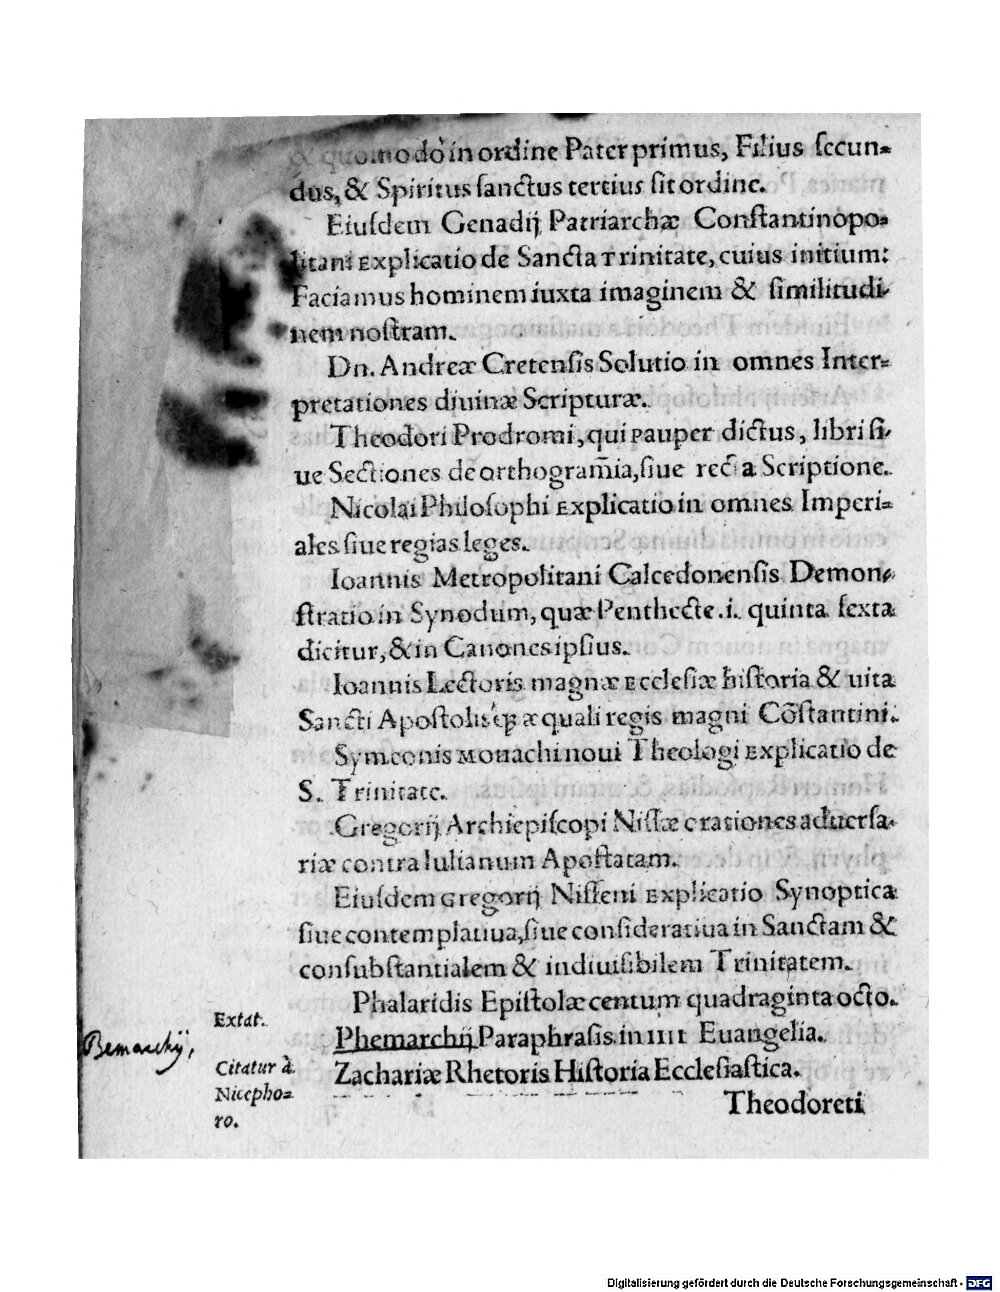 & quomodo in ordine Pater primus, Filius ſecun-
dus, & Spiritus ſanctus tertius ſit ordine.
Eiuſdem Genadij Patriarchæ Conſtantinopo-
litani Explicatio de Sancta Trinitate, cuius initium:
Faciamus hominem iuxta imaginem & ſimilitudi-
nem noſtram.
Dn. Andreæ Cretenſis Solutio in omnes Inter-
pretationes diuinæ Scripturæ.
Theodori Prodromi, qui pauper dictus, libri ſi-
ue Sectiones de orthogram̃ia, ſiue a Scriptione.
Nicolai Philoſophi Explicatio in omnes Imperi-
ales ſiue regias leges.
Ioannis Metropolitani Calcedonenſis Demon-
ſtratio in Synodum, quæ Penthecte .i. quinta ſexta
dicitur, & in Canones ipſius.
Ioannis Lectoris magnæ Eccleſiæ hiſtoria & uita
Sancti æquali regis magni Cõſtantini.
Symeonis Monachi noui Theologi Explicatio de
S. Trinitate.
Gregorij Archiepiſcopi Niſſæ orationes aduerſa-
riæ contra Iulianum Apoſtatam.
Eiuſdem Gregorij Niſſeni Explicatio Synoptica
ſiue contemplatiua, ſiue conſideratiua in Sanctam &
conſubſtantialem & indiuiſibilem Trinitatem.
Phalaridis Epiſtolæ centum quadraginta octo.
Extat.
Phemarchij Paraphraſis in IIII Euangelia.
Bemarchij,
Citatur à
Nicepho-
ro.
Zachariæ Rhetoris Hiſtoria Eccleſiaſtica.
Theodoreti
Digitalisierung gefördert durch die Deutsche Forschungsgemeinschaft - DFG